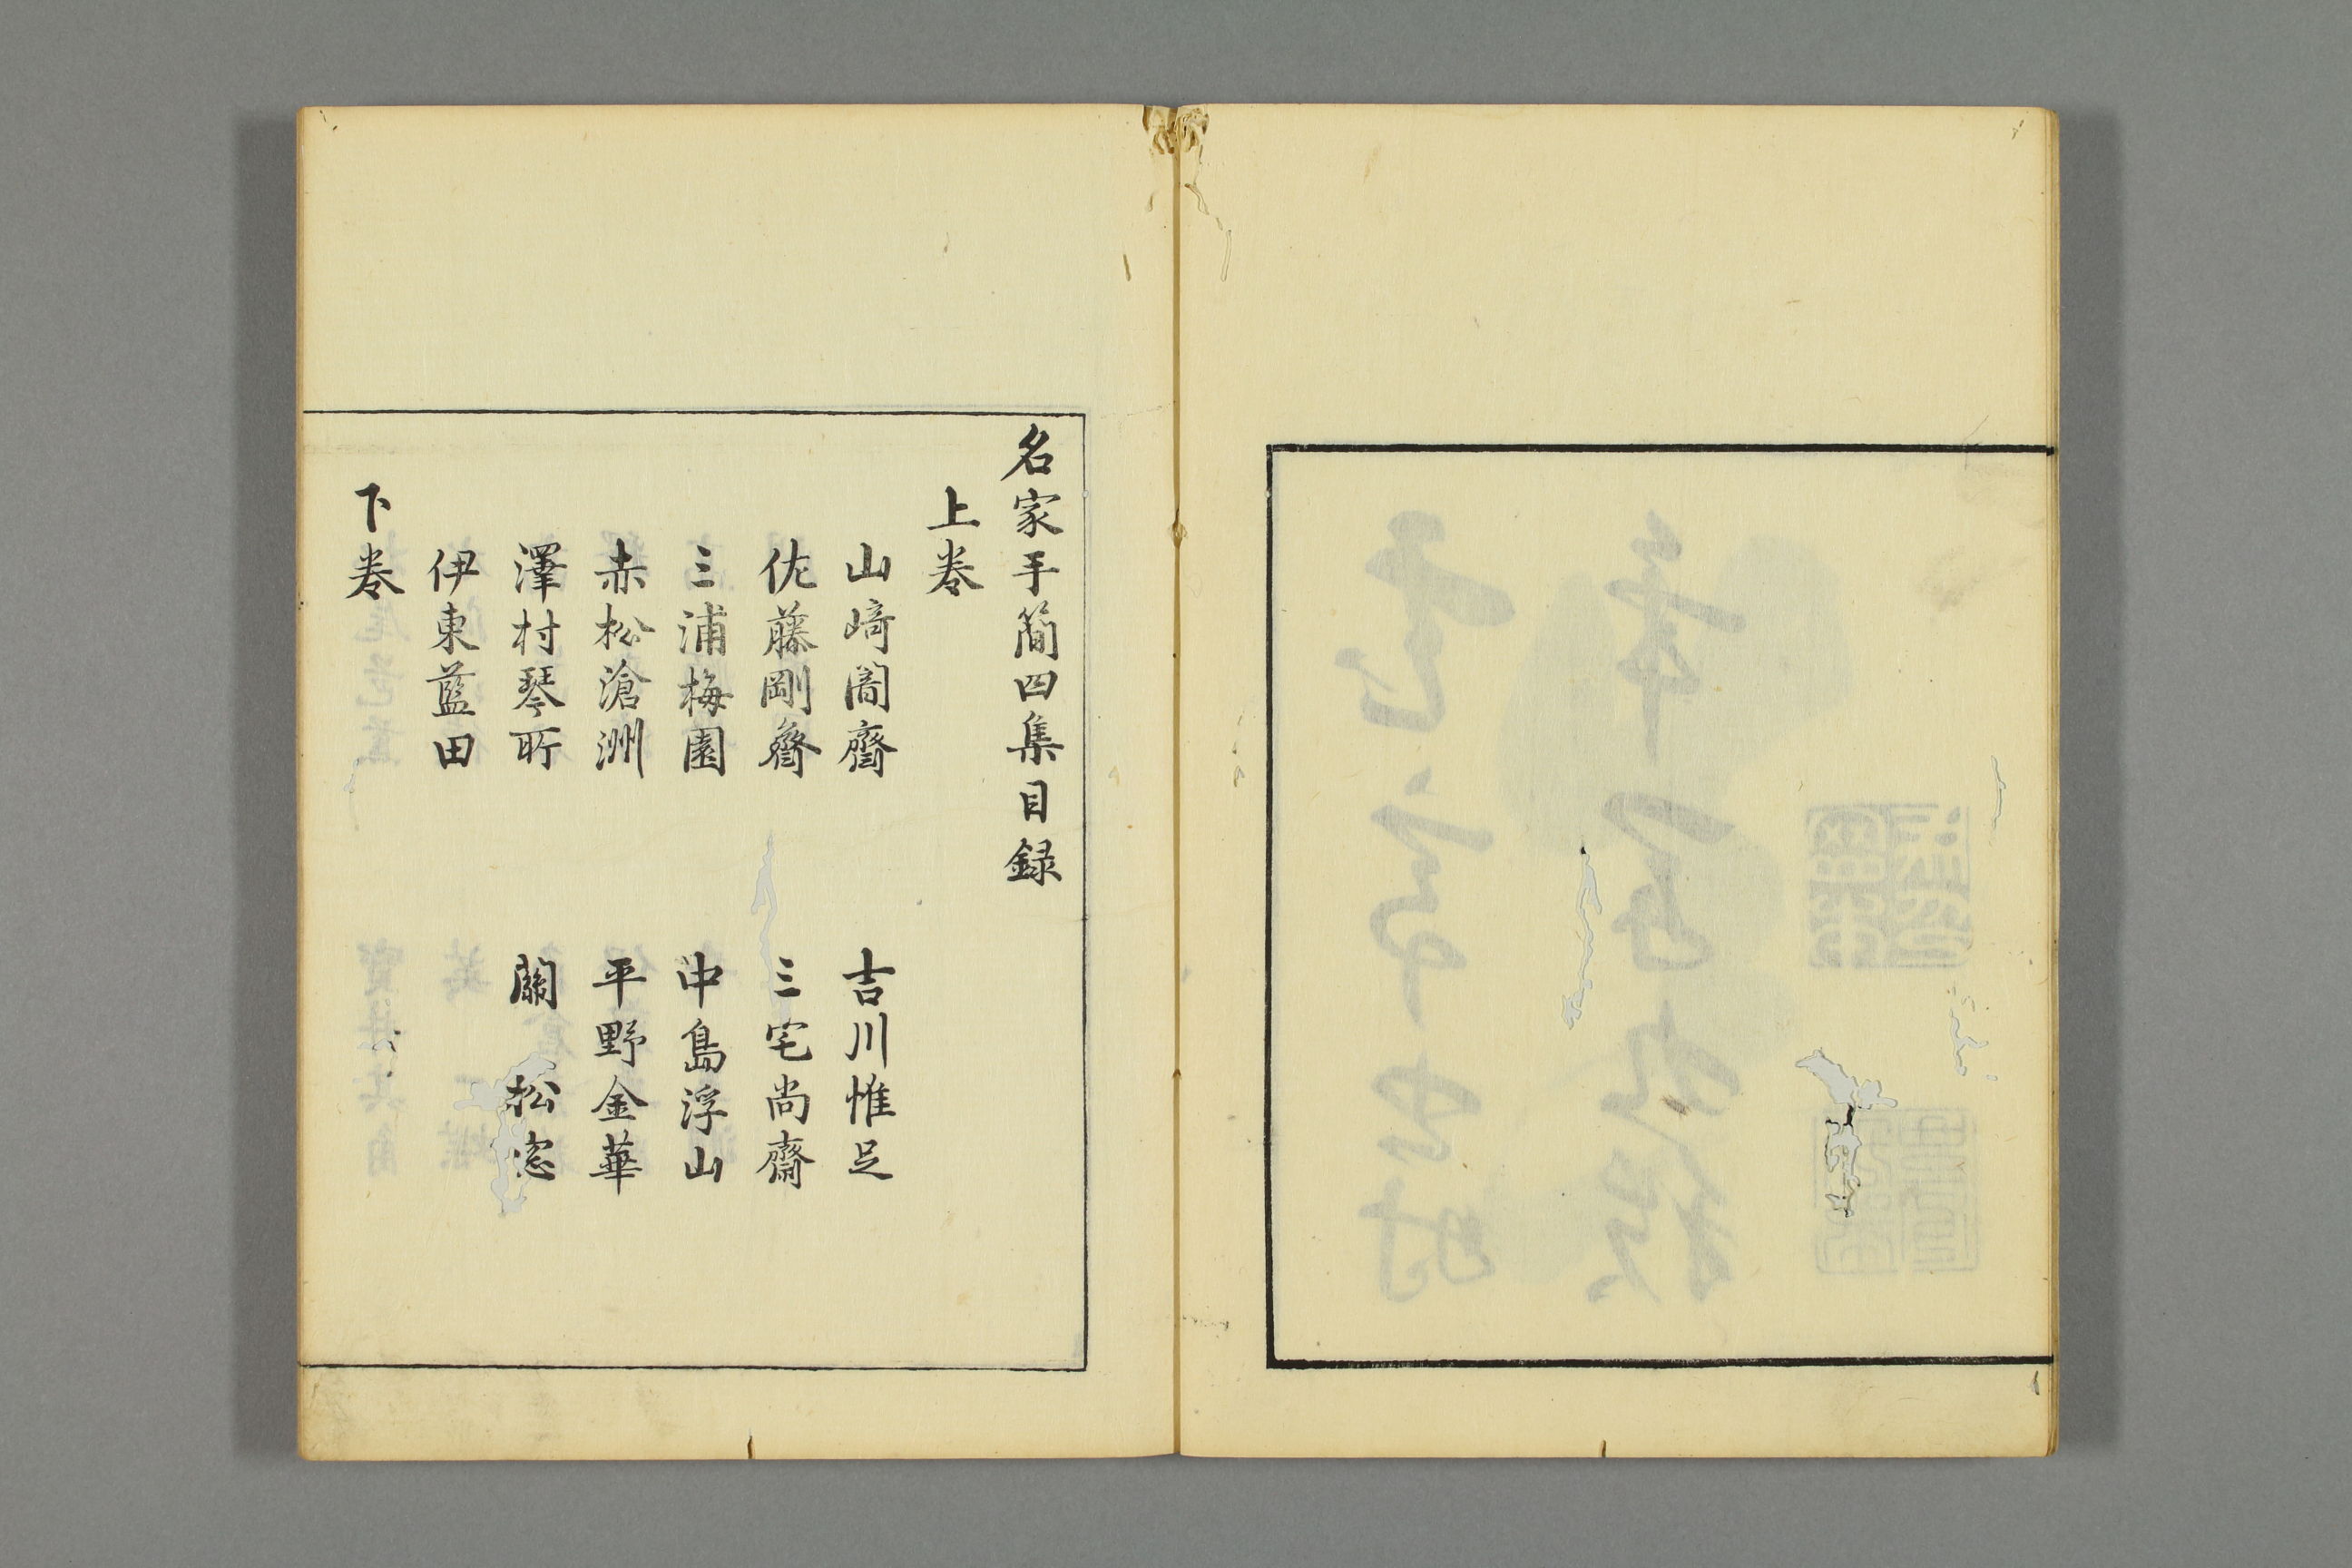 名家手簡四集目録
上巻
山﨑闇齋
吉川惟足
佐藤剛齋
三宅尚齋
三浦梅園
中島浮山
赤松滄洲
平野金華
澤村琴所
關松窓
伊東藍田
下巻